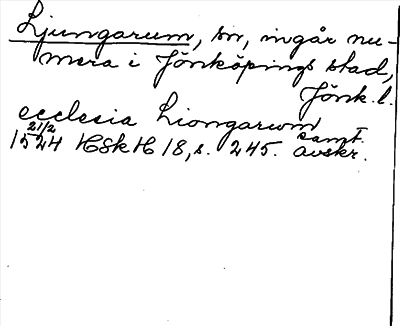 Ljungarum, sn, ingår nu-
mera i Jönköpings stad,
Jönk. l.
ecclesia Liongarwm
1524 21/2 HSkH 18, s. 245. samt. avskr.